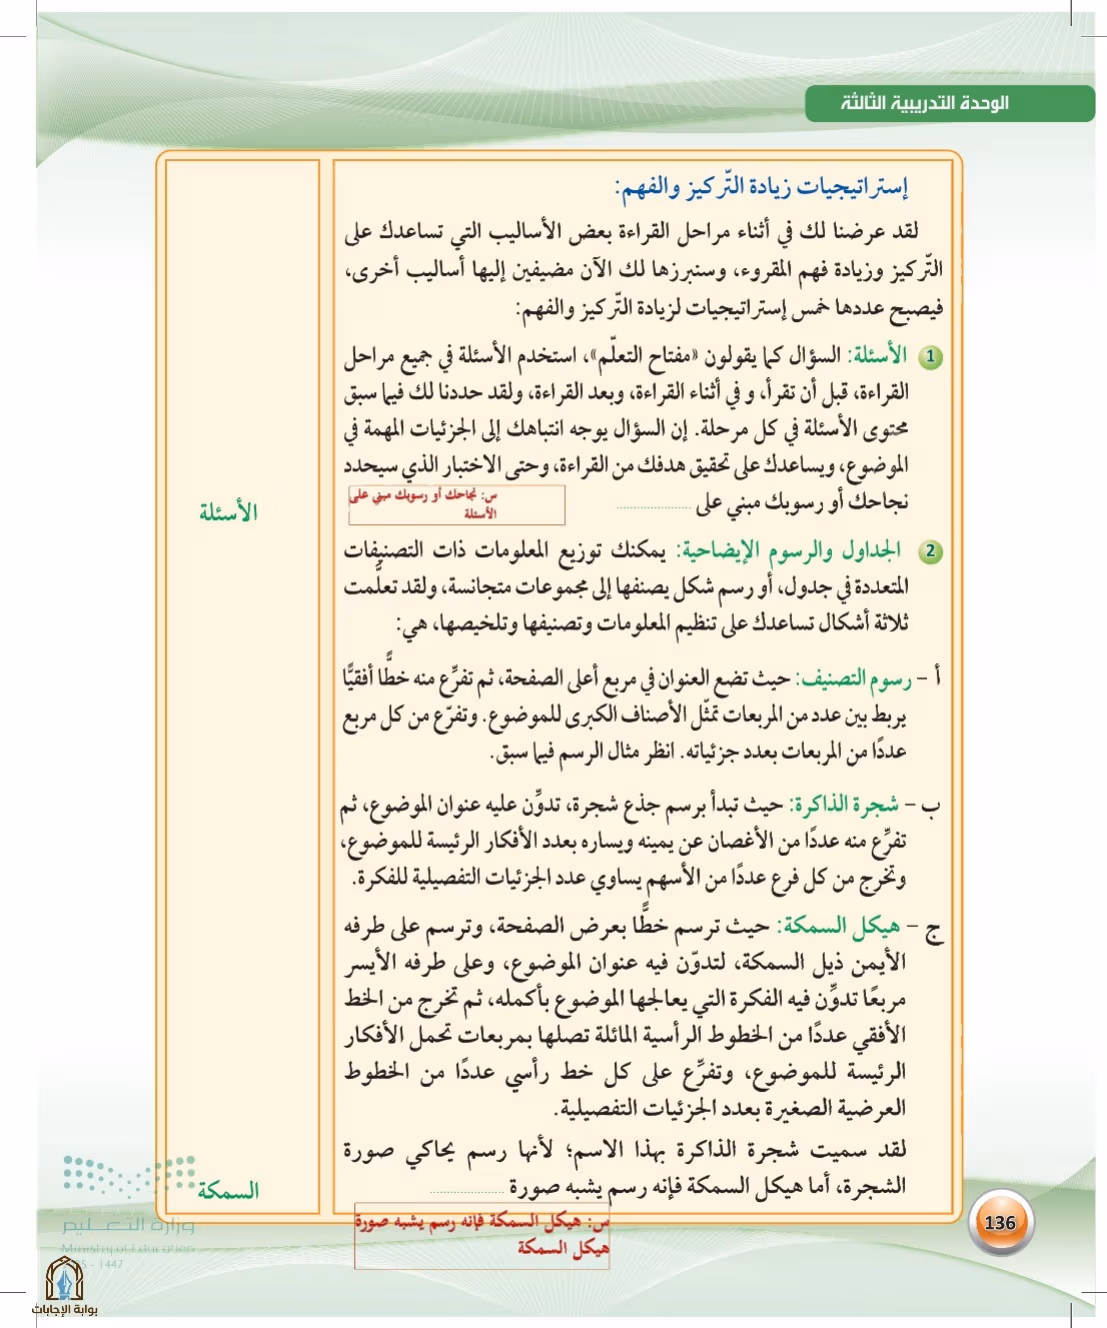 الوحدة التدريبية الثالثة
إستراتيجيات زيادة التّركيز والفهم:
لقد عرضنا لك في أثناء مراحل القراءة بعض الأساليب التي تساعدك على
التّركيز وزيادة فهم المقروء، وسنبرزها لك الآن مضيفين إليها أساليب أخرى،
فيصبح عددها خمس إستراتيجيات لزيادة التّركيز والفهم:
1 الأسئلة: السؤال كما يقولون «مفتاح التعلّم»، استخدم الأسئلة في جميع مراحل
القراءة، قبل أن تقرأ، وفي أثناء القراءة، وبعد القراءة، ولقد حددنا لك فيما سبق
محتوى الأسئلة في كل مرحلة. إن السؤال يوجه انتباهك إلى الجزئيات المهمة في
الموضوع، ويساعدك على تحقيق هدفك من القراءة، وحتى الاختبار الذي سيحدد
نجاحك أو رسوبك مبني على ....................
س: نجاحك أو رسوبك مبني على
الأسئلة
الأسئلة
2 الجداول والرسوم الإيضاحية: يمكنك توزيع المعلومات ذات التصنيفات
المتعددة في جدول، أو رسم شكل يصنفها إلى مجموعات متجانسة، ولقد تعلَّمت
ثلاثة أشكال تساعدك على تنظيم المعلومات وتصنيفها وتلخيصها، هي:
أ – رسوم التصنيف: حيث تضع العنوان في مربع أعلى الصفحة، ثم تفرِّع منه خطًّا أفقيًّا
يربط بين عدد من المربعات تمثّل الأصناف الكبرى للموضوع. وتفرّع من كل مربع
عددًا من المربعات بعدد جزئياته. انظر مثال الرسم فيما سبق.
ب – شجرة الذاكرة: حيث تبدأ برسم جذع شجرة، تدوِّن عليه عنوان الموضوع، ثم
تفرِّع منه عددًا من الأغصان عن يمينه ويساره بعدد الأفكار الرئيسة للموضوع،
وتخرج من كل فرع عددًا من الأسهم يساوي عدد الجزئيات التفصيلية للفكرة.
ج – هيكل السمكة: حيث ترسم خطًّا بعرض الصفحة، وترسم على طرفه
الأيمن ذيل السمكة، لتدوّن فيه عنوان الموضوع، وعلى طرفه الأيسر
مربعًا تدوِّن فيه الفكرة التي يعالجها الموضوع بأكمله، ثم تخرج من الخط
الأفقي عددًا من الخطوط الرأسية المائلة تصلها بمربعات تحمل الأفكار
الرئيسة للموضوع، وتفرِّع على كل خط رأسي عددًا من الخطوط
العرضية الصغيرة بعدد الجزئيات التفصيلية.
لقد سميت شجرة الذاكرة بهذا الاسم؛ لأنها رسم يحاكي صورة
الشجرة، أما هيكل السمكة فإنه رسم يشبه صورة ....................
السمكة
س: هيكل السمكة فإنه رسم يشبه صورة
هيكل السمكة
136
وزارة التعليم
Ministry of Education
5 - 1447
بوابة الإجابات